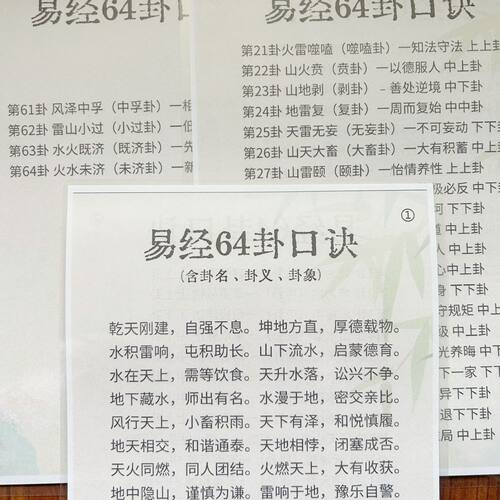 易经64卦口诀
第61卦 风泽中孚（中孚卦）一
第62卦 雷山小过（小过卦）一
第63卦 水火既济（既济卦）一先
第64卦 火水未济（未济卦）一
易经64卦口诀
第21卦火雷噬嗑（噬嗑卦）一知法守法 上上
第22卦 山火贲（贲卦）一以德服人 中上卦
第23卦 山地剥（剥卦）– 善处逆境 中中卦
第24卦 地雷复（复卦）一周而复始 中中卦
第25卦 天雷无妄（无妄卦）一不可妄动 下下
第26卦 山天大畜（大畜卦）一大有积蓄 中上
第27卦 山雷颐（颐卦）一怡情养性 上上卦
极必反 中下卦
下下卦
中上卦
中上卦
心中上卦
下下卦
守规矩 中上卦
中上卦
光养晦 中下卦
一家 下下卦
异下下卦
退下下卦
卦 中上卦
①
易经64卦口诀
(含卦名、卦义、卦象)
乾天刚建，自强不息。坤地方直，厚德载物。
水积雷响，屯积助长。山下流水，启蒙德育。
水在天上，需等饮食。天升水落，讼兴不争。
地下藏水，师出有名。水漫于地，密交亲比。
风行天上，小畜积雨。天下有泽，和悦慎履。
地天相交，和谐通泰。天地相悖，闭塞成否。
天火同燃，同人团结。火燃天上，大有收获。
地中隐山，谨慎为谦。雷响于地，豫乐自警。